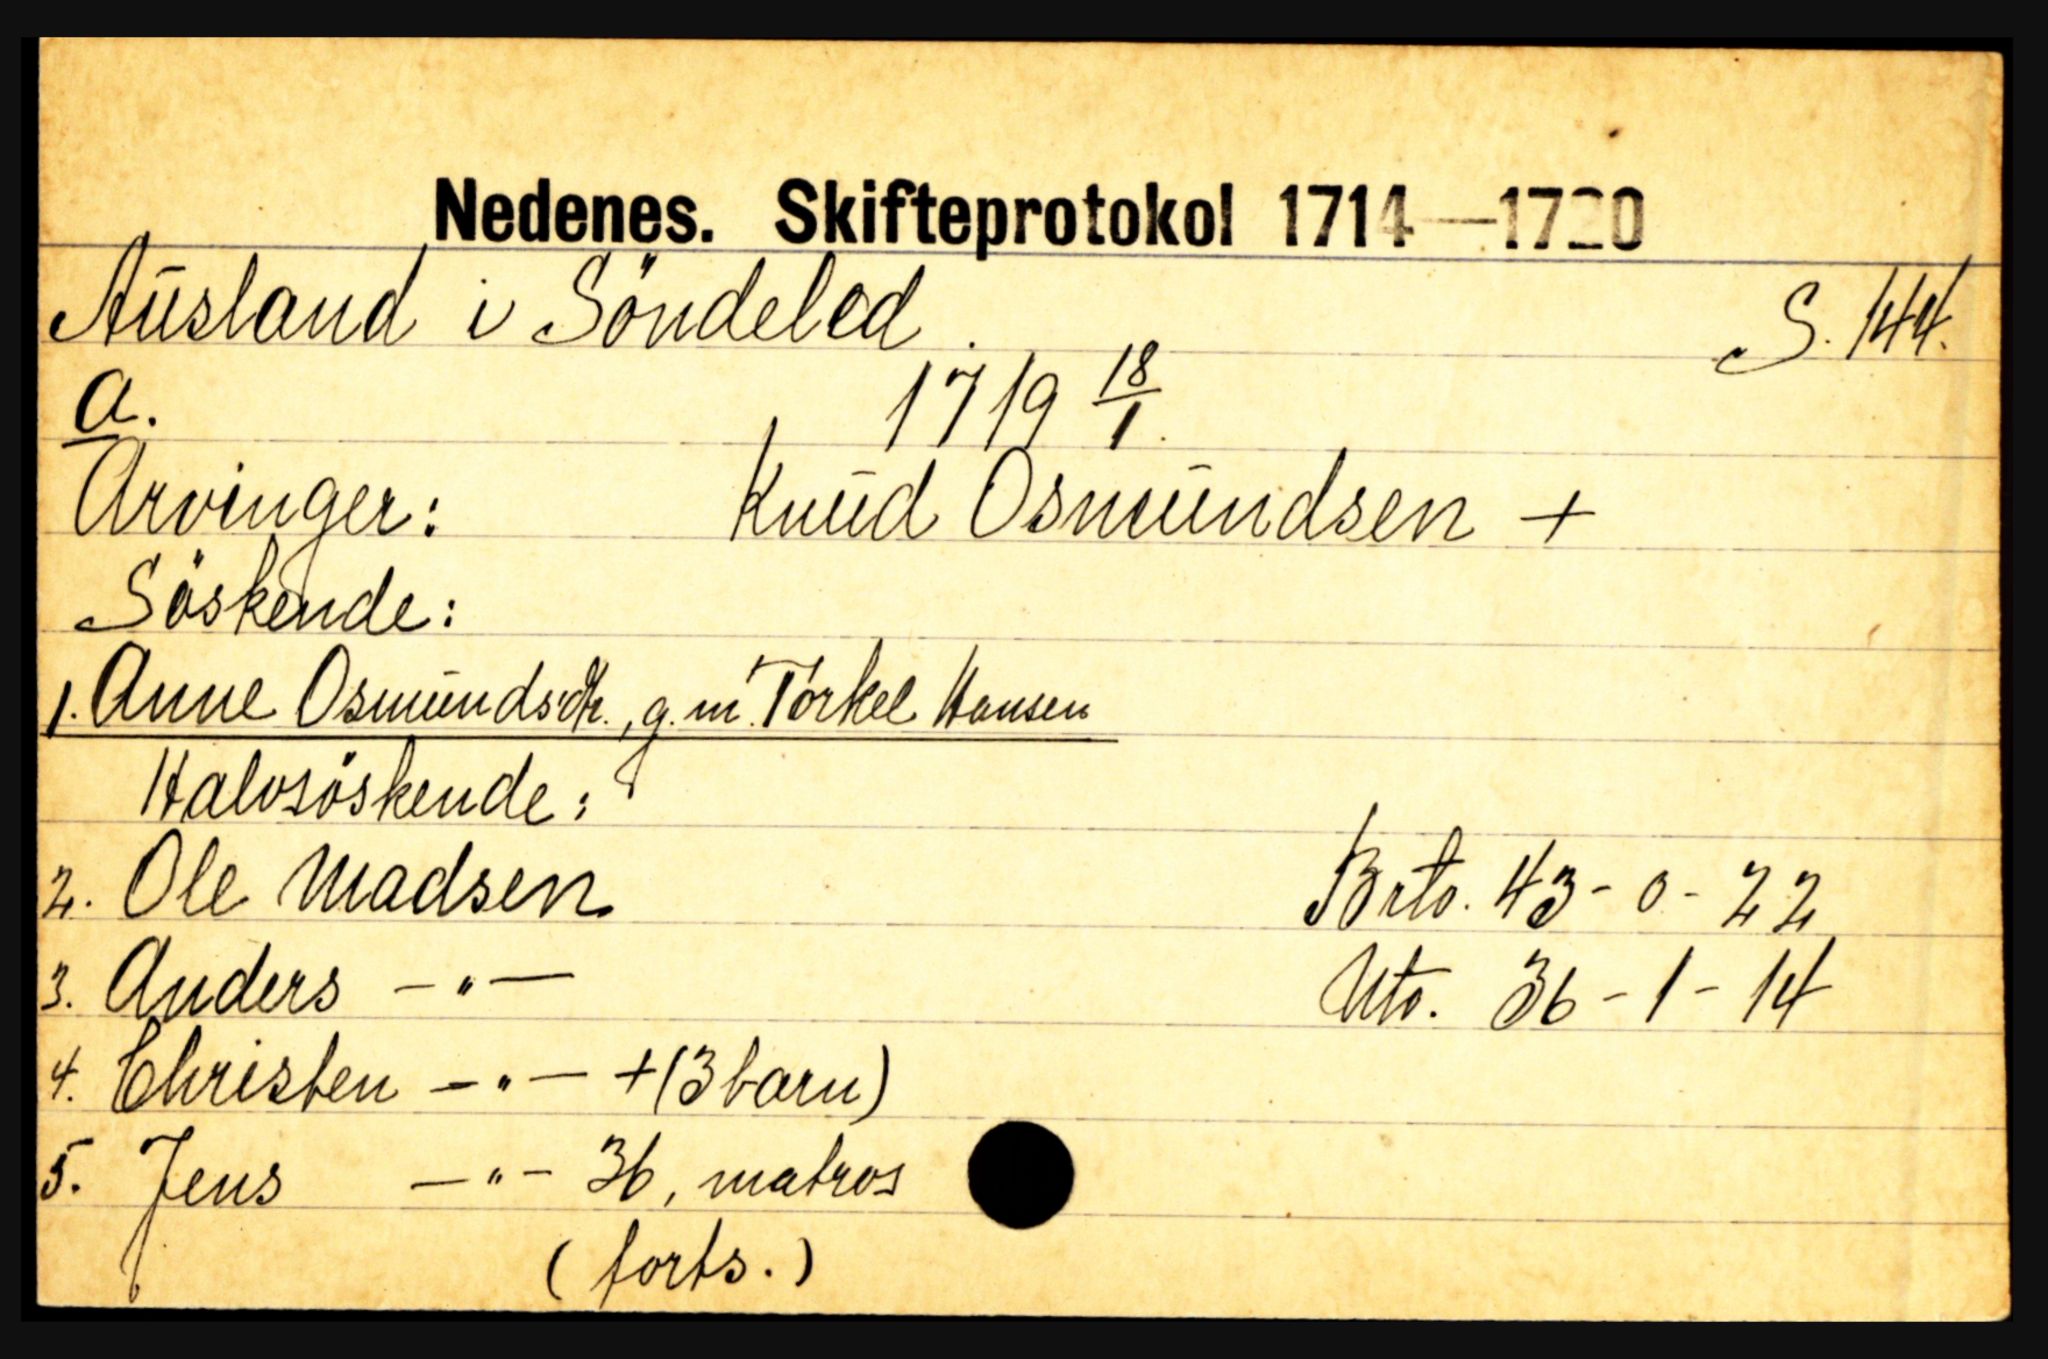 Nedenes. Skifteprotokol 1714—1720
Ausland i Söndeled. S. 144.
a. 1719 18/1.
Arvinger: Knud Osmundsen +
Söskende:
1. Anne Osmundsdtr., g. m. Torkel Hansen
Halvsöskende:
2. Ole Madsen Brto. 43 - 0 - 22
3. Anders — " — Nto. 36 - 1 - 14
4. Christen — " — + (3 barn)
5. Jens — " — 36, matros
(forts.)